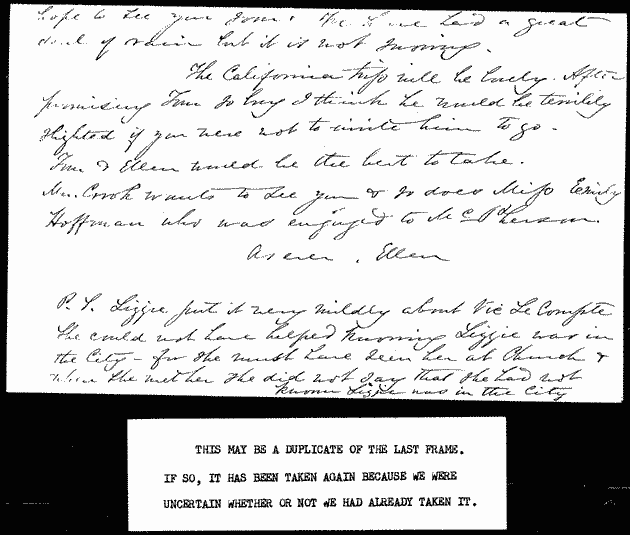 hope to see you soon. We have had a great
deal of rain but it is not snowing.
The California trip will be lovely. After
promising Tom so long I think he would be terribly
slighted if you were not to invite him to go.
Tom & Ellen would be the best to take.
Mr. Crook wants to see you & so does Miss Emily
Hoffman who was engaged to McPherson.
As ever, Ellen
P. S. Lizzie put it very mildly about Vic Le Compte
She could not have helped knowing Lizzie was in
the City - for she must have seen her at Church &
when she met her she did not say that she had not
known Lizzie was in the City
THIS MAY BE A DUPLICATE OF THE LAST FRAME.
IF SO, IT HAS BEEN TAKEN AGAIN BECAUSE WE WERE
UNCERTAIN WHETHER OR NOT WE HAD ALREADY TAKEN IT.